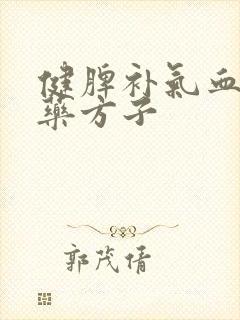 健脾补氣血
藥方子
郭茂倩